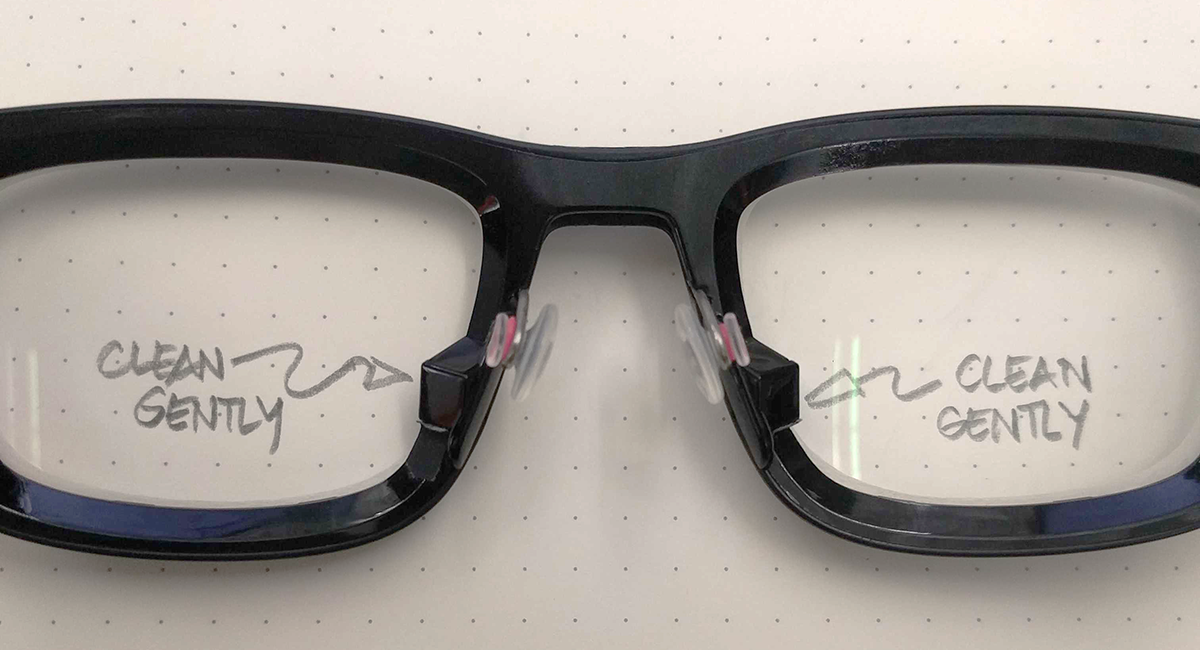 CLEAN
GENTLY
CLEAN
GENTLY